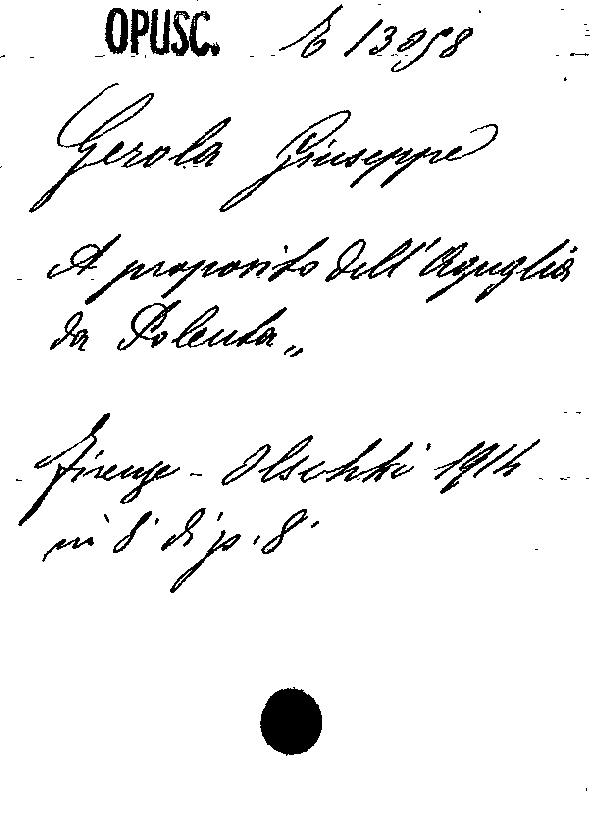 OPUSC. E 13058
Gerola Giuseppe
A proposito dell'Aguglia
da Polenta„
Firenze - Olschki 1914
in 8° di p. 8.